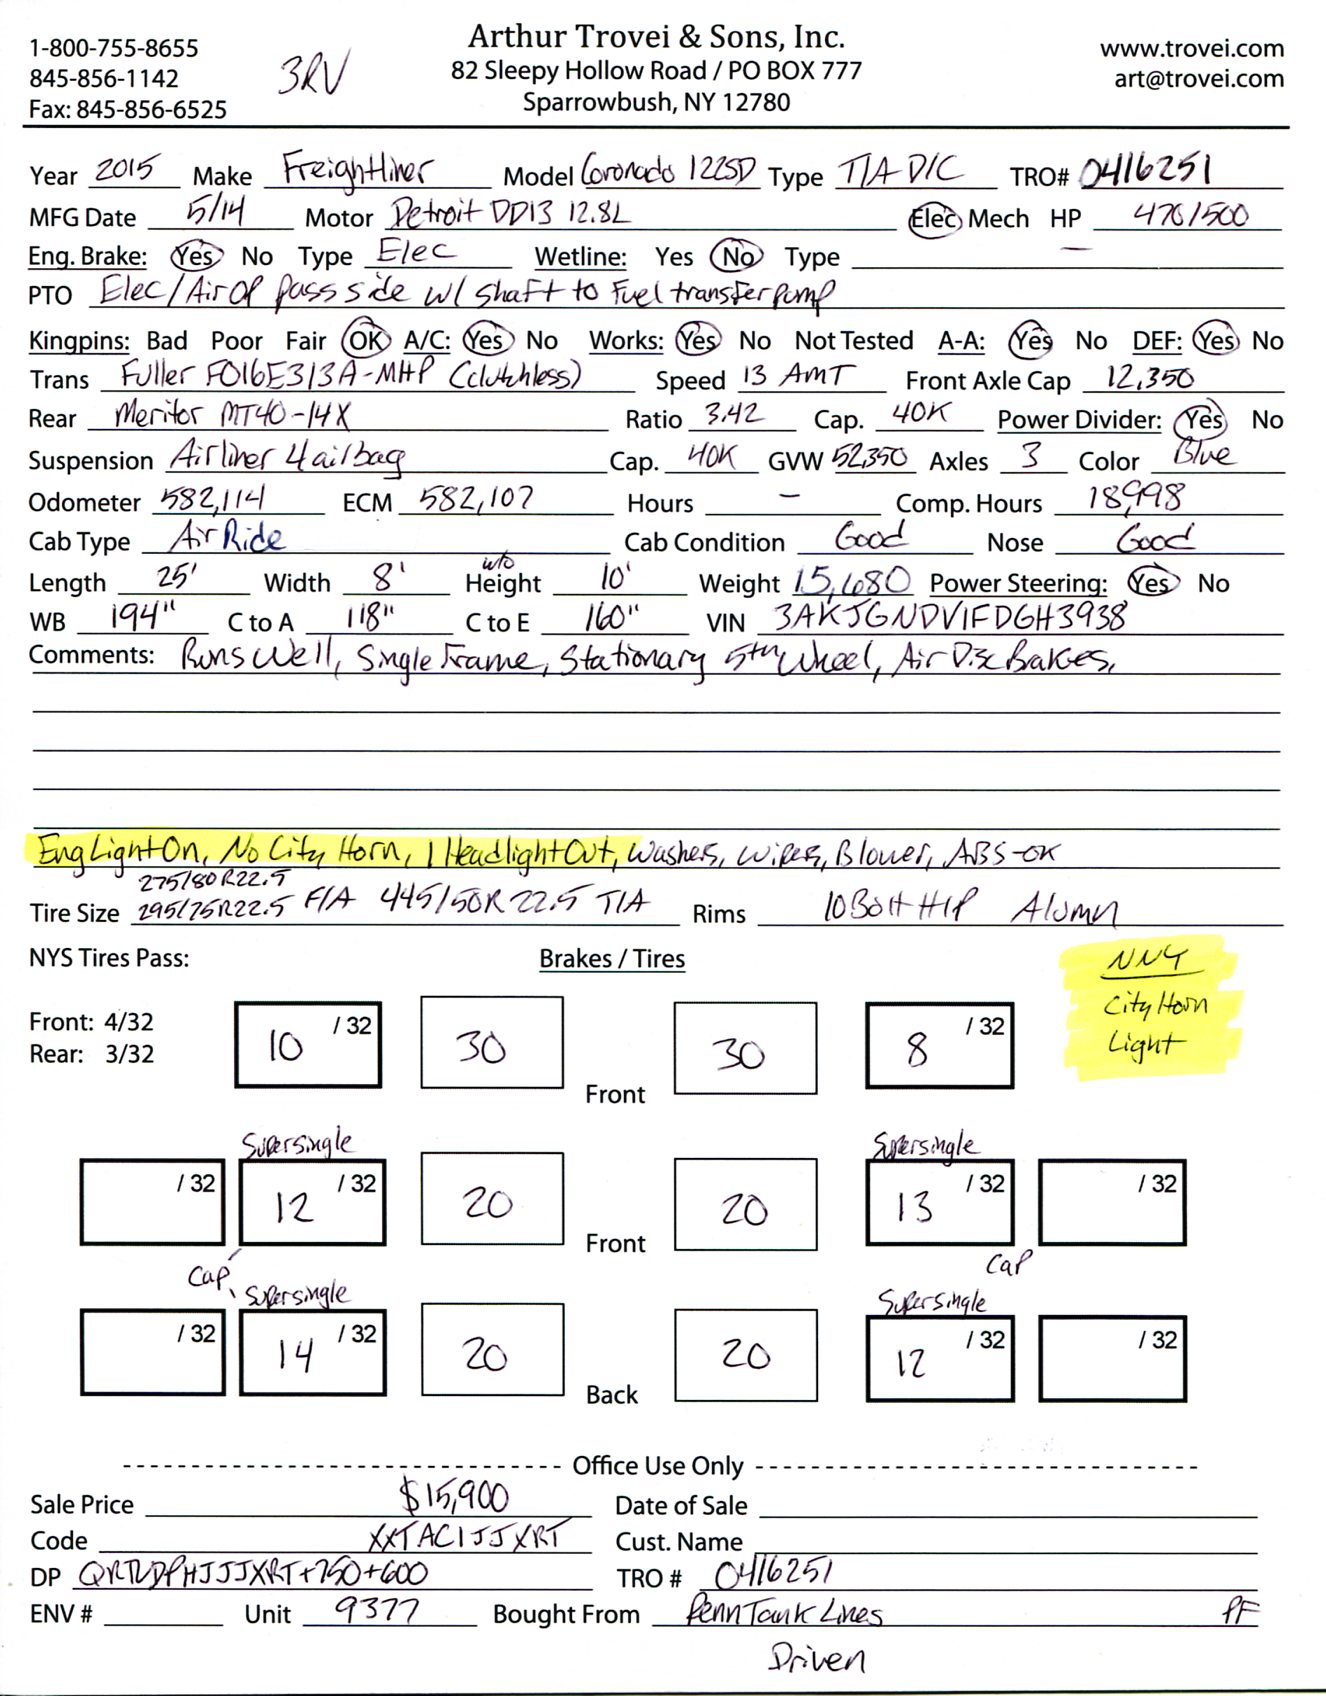 1-800-755-8655
845-856-1142
Fax: 845-856-6525
3RV
Arthur Trovei & Sons, Inc.
82 Sleepy Hollow Road / PO BOX 777
Sparrowbush, NY 12780
www.trovei.com
art@trovei.com
Year 2015 Make Freightliner Model Coronado 122SD Type T/A D/C TRO# 0416251
MFG Date 5/14 Motor Detroit DD13 12.8L Elec Mech HP 470/500
Eng. Brake: Yes No Type Elec Wetline: Yes No Type —
PTO Elec/Air Op pass side w/ shaft to Fuel transfer pump
Kingpins: Bad Poor Fair OK A/C: Yes No Works: Yes No Not Tested A-A: Yes No DEF: Yes No
Trans Fuller FO16E313A-MHP (clutchless) Speed 13 AMT Front Axle Cap 12,350
Rear Meritor MT40-14X Ratio 3.42 Cap. 40K Power Divider: Yes No
Suspension Airliner 4 airbag Cap. 40K GVW 52,350 Axles 3 Color Blue
Odometer 582,114 ECM 582,107 Hours — Comp. Hours 18,998
Cab Type Air Ride Cab Condition Good Nose Good
Length 25' Width 8' w/o Height 10' Weight 15,680 Power Steering: Yes No
WB 194" C to A 118" C to E 160" VIN 3AKJGNDV1FDGH3938
Comments: Runs Well, Single Frame, Stationary 5th Wheel, Air Disc Brakes,
Eng Light On, No City Horn, 1 Headlight Out, Washers, Wipers, Blower, ABS-OK
275/80R22.5
Tire Size 295/75R22.5 F/A 445/50R22.5 T/A Rims 10 Bolt H/P Alumn
NYS Tires Pass:
Brakes / Tires
NNY
City Horn
Light
Front: 4/32
Rear: 3/32
10 /32 30 Front 30 8 /32
Supersingle Supersingle
/32 12 /32 20 Front 20 13 /32 /32
Cap Cap
Supersingle Supersingle
/32 14 /32 20 Back 20 12 /32 /32
Office Use Only
Sale Price $15,900 Date of Sale
Code XXTACIJJXRT Cust. Name
DP +750+600 TRO # 0416251
ENV # Unit 9377 Bought From Penn Tank Lines PF
Driven